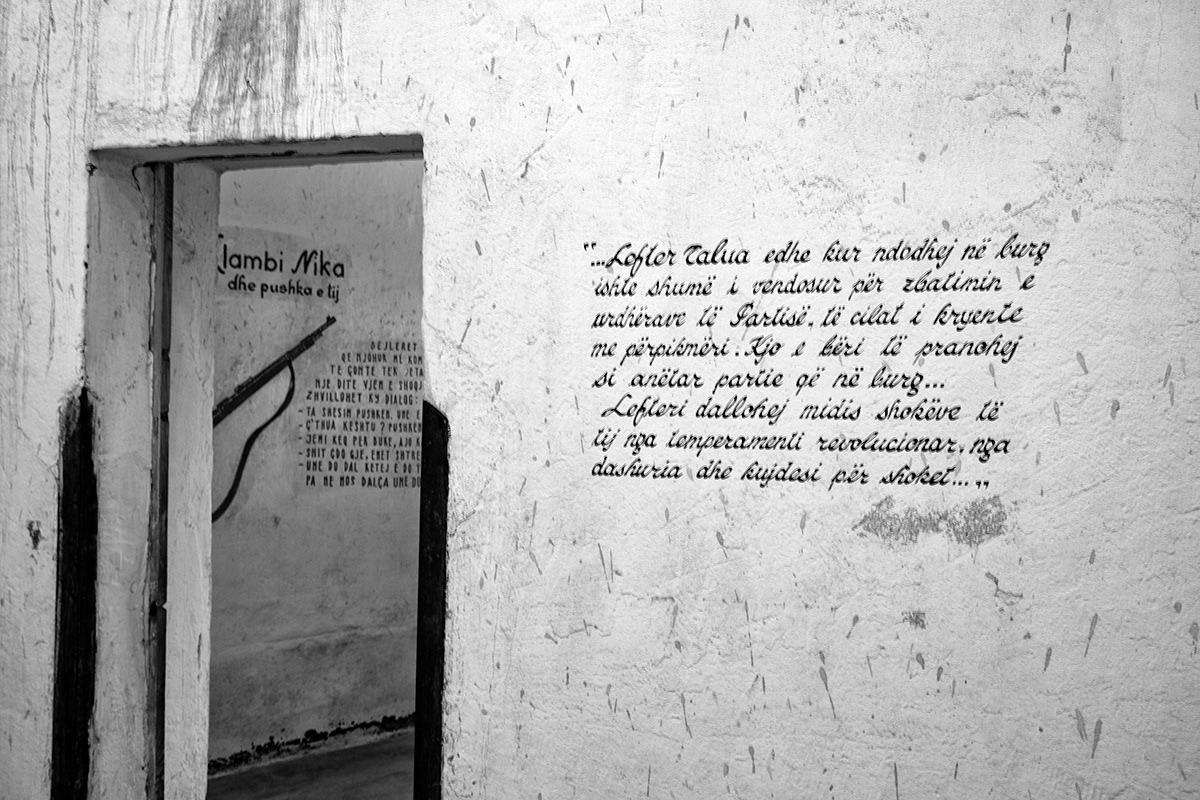 Llambi Nika
dhe pushka e tij
BEJLERET
QE NJOHUR ME KOM
TE ÇONTE TEK JETA
NJE DITE VJEN E SHOQJ
ZHVILLOHET KY DIALOG:
- TA SHESIM PUSHKEN. UNE E
- Ç'THUA KESHTU? PUSHKEN
- JEMI KEQ PER BUKE, AJO K
- SHIT ÇDO GJE, EDHE SHTRE
- UNE DO DAL KETEJ E DO T
PA NE MOS DALÇA UNE DO
"...Lefter Talua edhe kur ndodhej në burg
ishte shumë i vendosur për zbatimin e
urdhërave të Partisë, të cilat i kryente
me përpikmëri. Kjo e bëri të pranohej
si anëtar partie që në burg...
Lefteri dallohej midis shokëve të
tij nga temperamenti revolucionar, nga
dashuria dhe kujdesi për shoket...,,